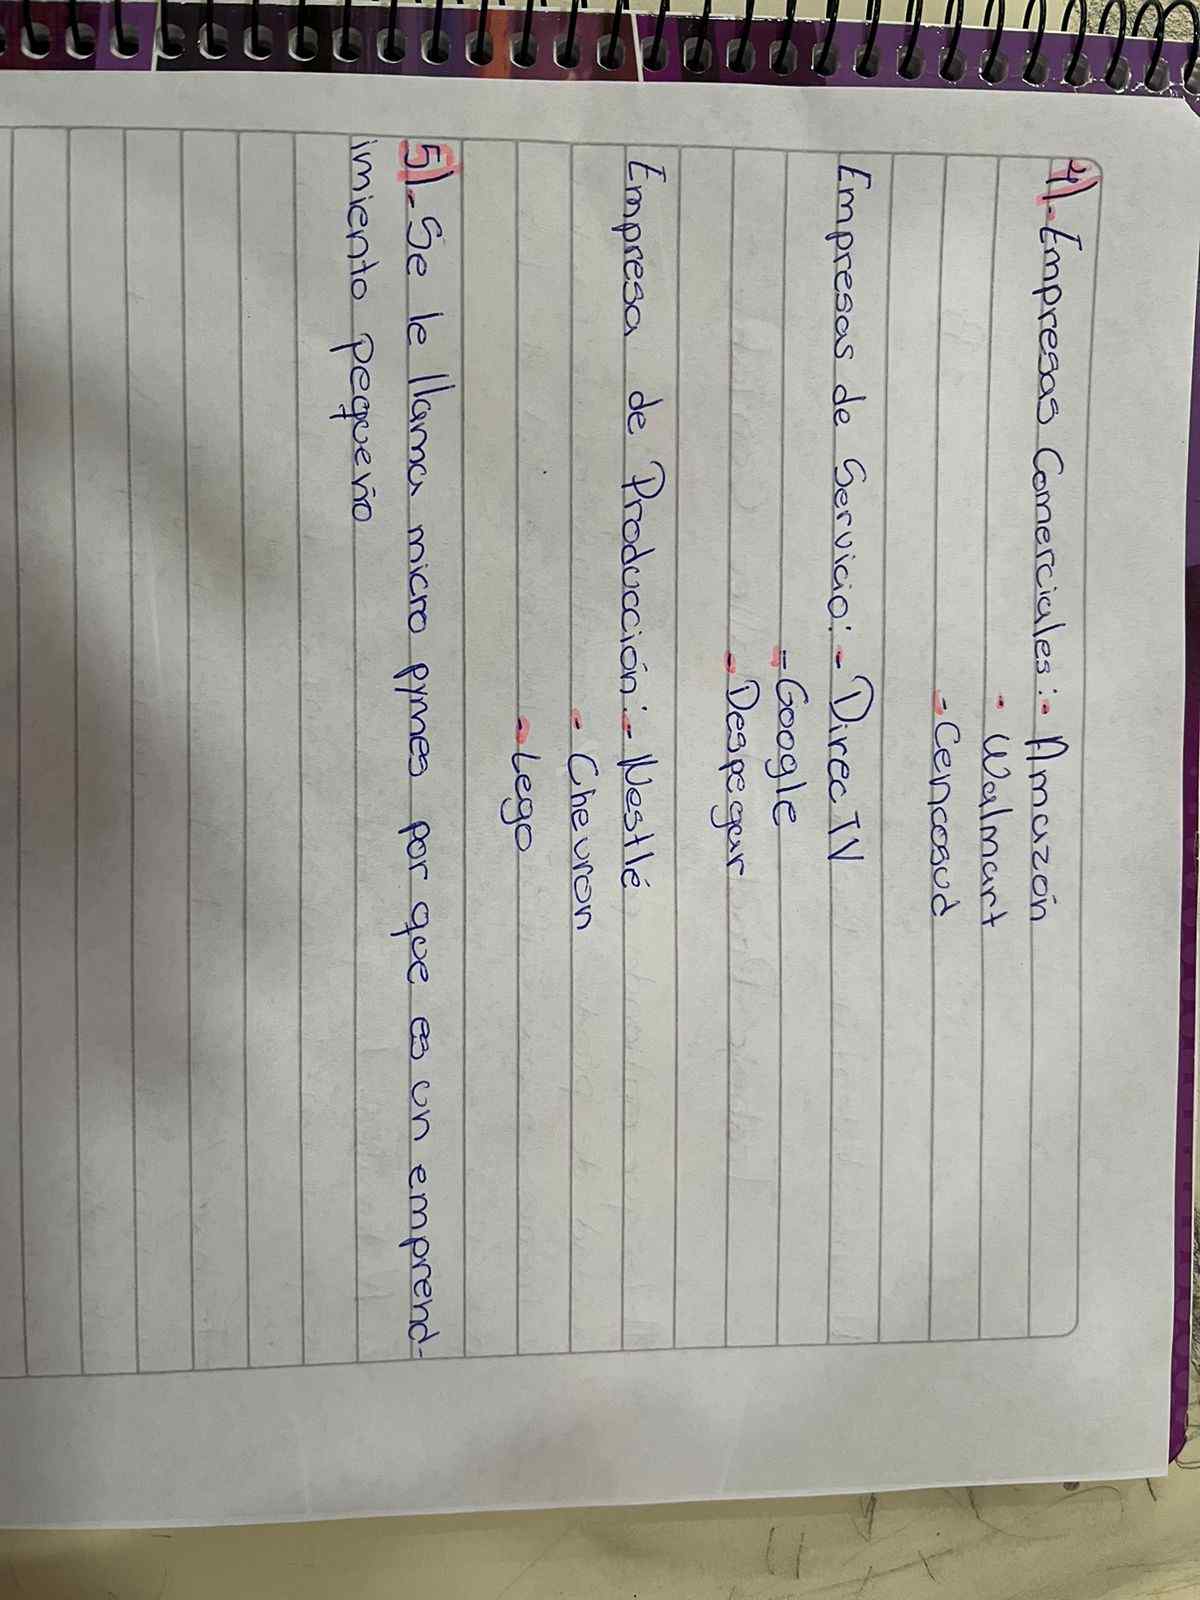 4).- Empresas Comerciales: - Amazón
- Walmart
- Cencosud
Empresas de Servicio: - Direc TV
- Google
- Despegar
Empresa de Producción: - Nestlé
- Chevron
- Lego
5).- Se le llama micro pymes por que es un emprend-
imiento pequeño